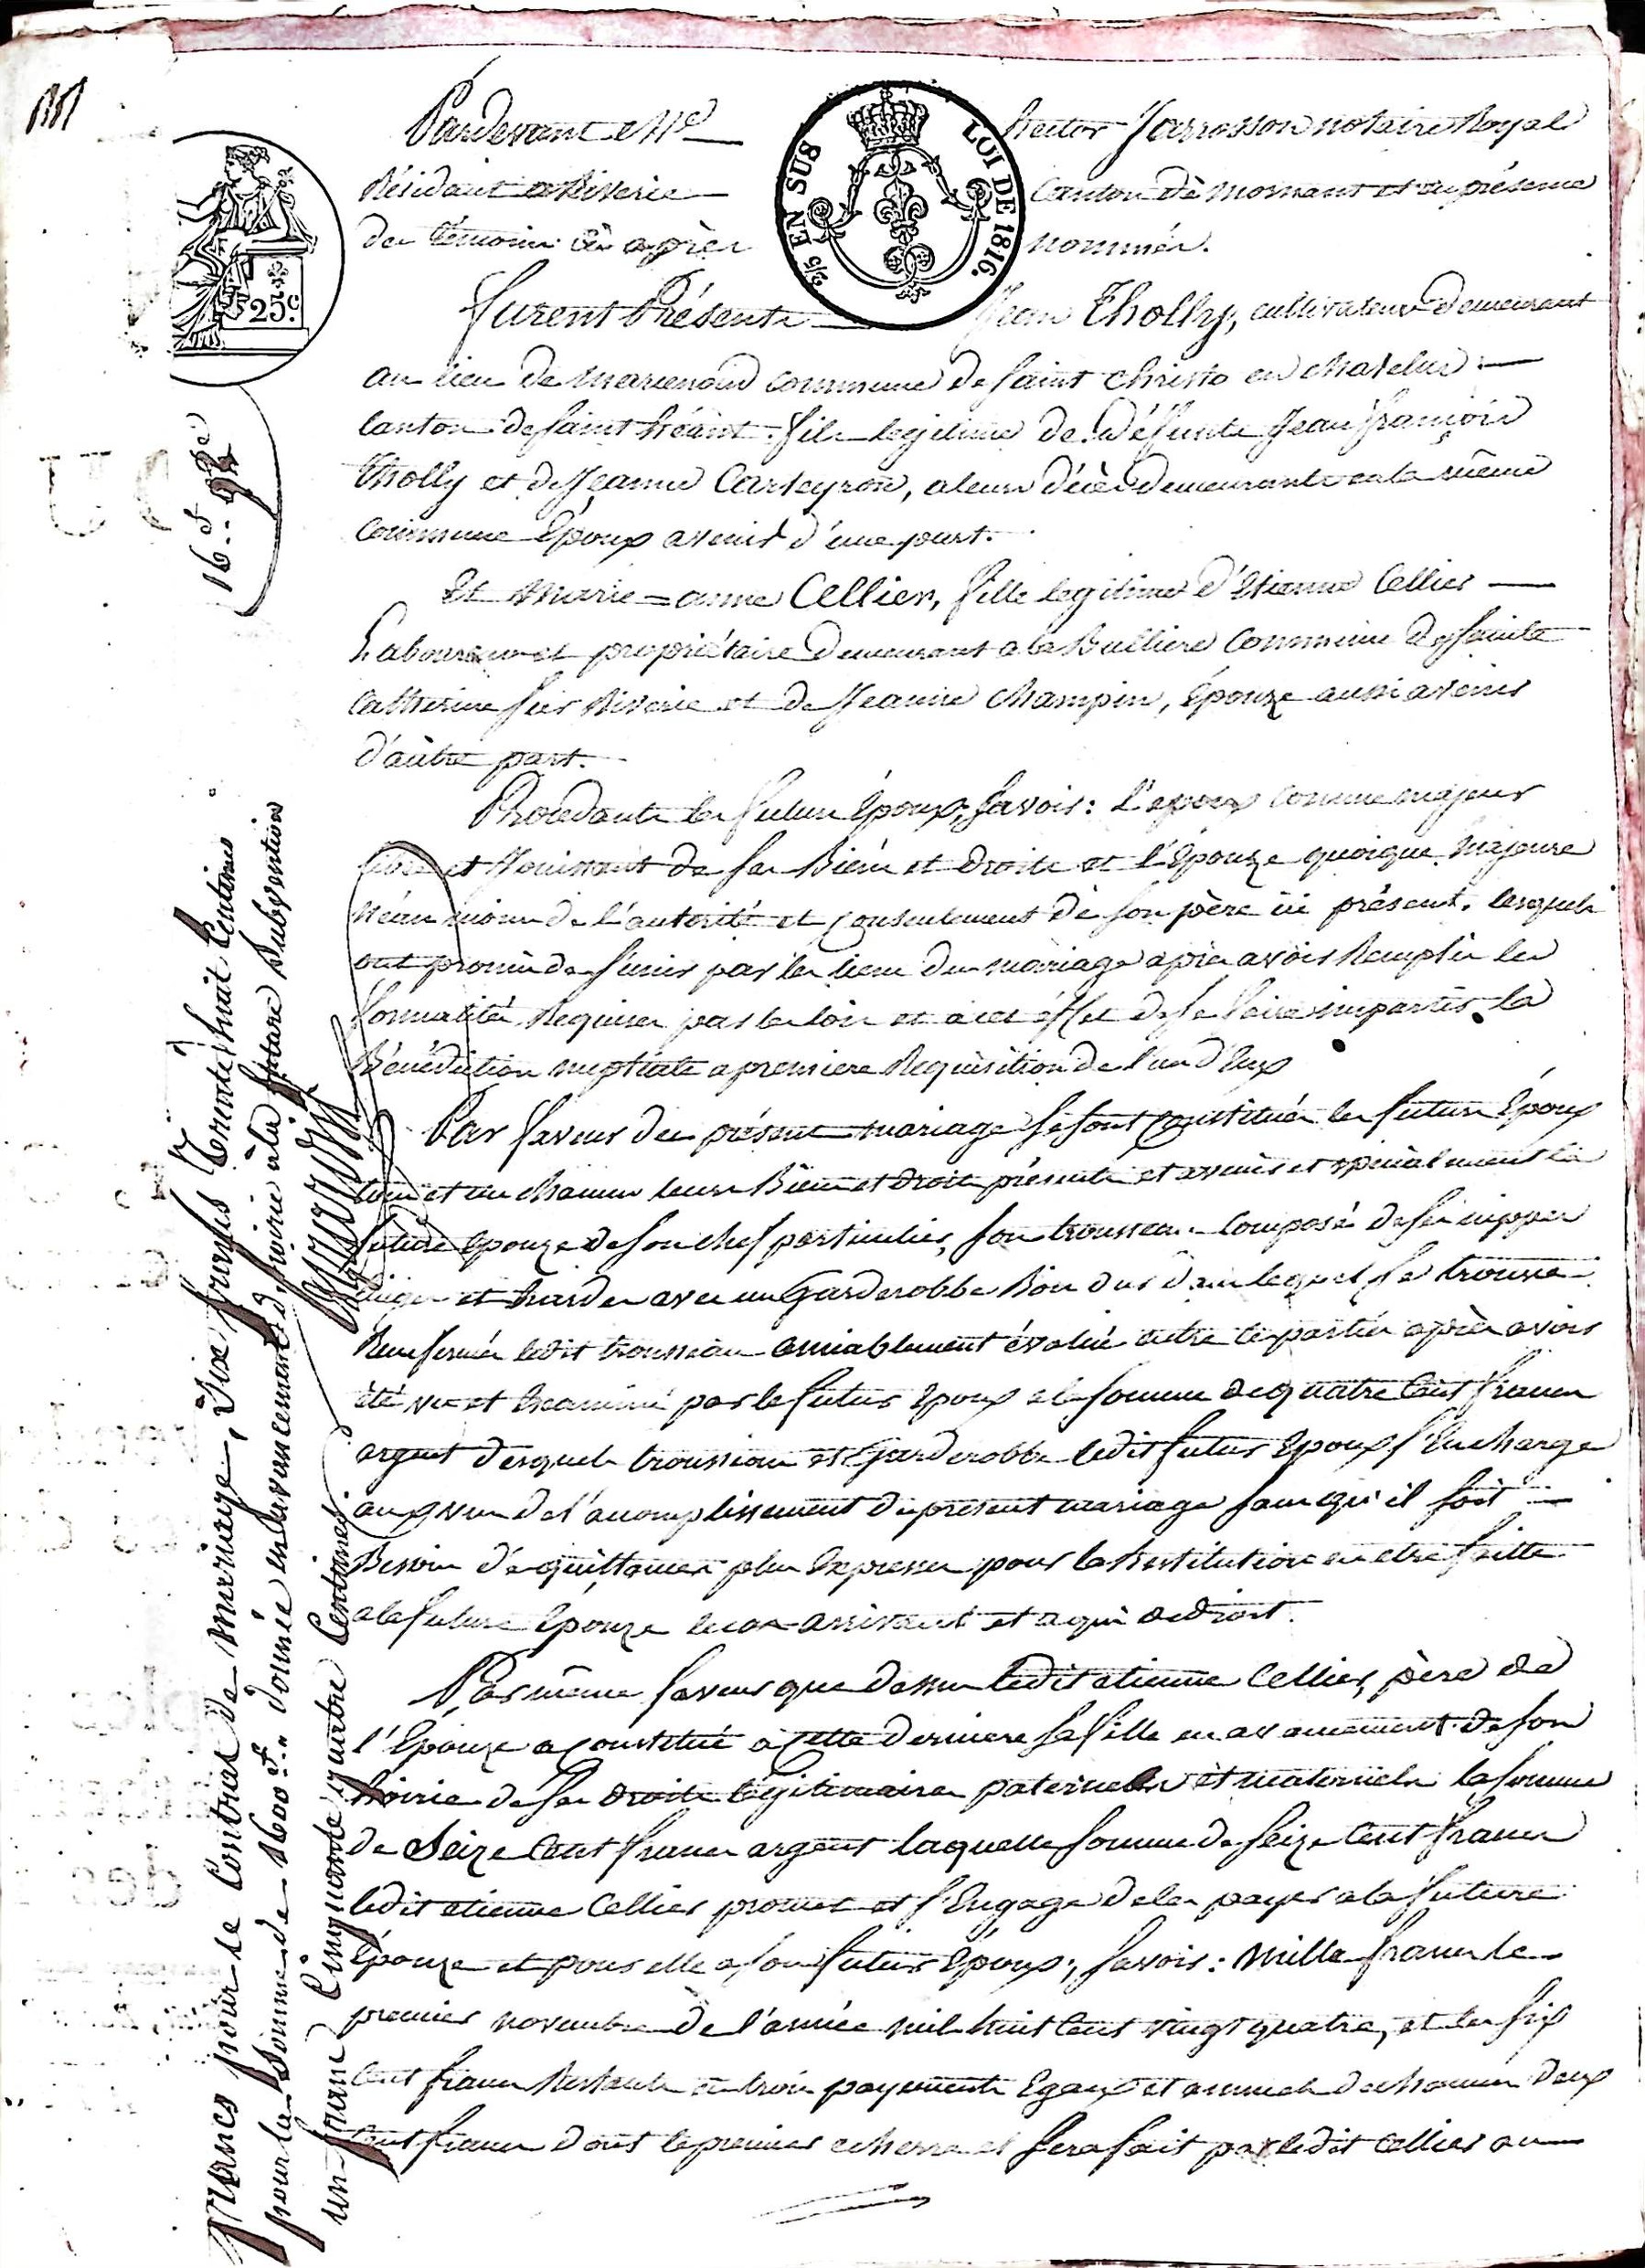 Pardevant Me hector Jarrosson notaire Royal
Résidant a Riverie Canton de mornant et en présence
des témoins ci après nommés.
furent Présents Jean Tholly, cultivateur demeurant
au lieu de commune de saint christo en chatelus
canton de saint héant fils legitime de défunts Jean françois
Tholly et de Jeanne Carteyron, a leurs décès demeurants en la même
commune Epoux avenir d'une part.
Et Marie=anne Cellier, fille legitime d'Etienne Cellier
Laboureur et propriétaire demeurant a la Bulliere commune de sainte
catherine sur Riverie et de Jeanne champin, épouze aussi avenir
d'autre part.
Procedants les futurs époux, savoir: l'epoux comme majeur
libre et Jouissant de ses Biens et droits et l'épouze quoique majeure
néanmoins de l'autorité et consentement de son père ici présent. lesquels
ont promis de s'unir par les liens du mariage après avoir Remplis les
formalités Requises par les lois et a cet effet de se faire impartir la
Bénédiction nuptiale a premiere Requisition de l'un d'Eux
Par faveur du présent mariage se sont constitués les futurs époux
tous et un chacun leurs Biens et droits présents et avenir et spécialement la
future épouze de son chef particulier, son trousseau composé de ses nippes
linges et hardes avec un Garderobbe Bois dur dans lequel se trouve
Renfermés ledit trousseau amiablement évalué entre les parties après avoir
été vu et Examiné par le futur Epoux a la somme de quatre cent francs
argent desquels trousseau et Garderobbe ledit futur Epoux s'Encharge
au moyen de l'accomplissement du present mariage sans qu'il soit
Besoin d'e quittances plus Expresses pour la Restitution en etre faitte
a la future épouze le cas arrivant et a qui de droit.
Par même faveur que dessus ledit etienne Cellier, père de
l'Epouze a constitué a cette derniere sa fille en avancement de son
hoirie de ses droits légitimaires paternels et maternels la somme
de Seize cent francs argent laquelle somme de seize cent francs
ledit etienne Cellier promet et s'Engage de les payer a la future
épouze et pour elle a son futur Epoux; savoir: mille francs le
premier novembre de l'année mil huit cent vingt quatre, et les six
cent francs Restants en trois payements Egaux et annuels de chacun deux
cent francs dont le premier echerra et sera fait par ledit Cellier au
16. 9bre
pour le Contrat de mariage, Six francs Trente huit Centimes
pour la Somme de 1600f.. donnée en avancement d'hoirie à la future Subvention
un franc Cinquante quatre Centimes
25c.
2/5 EN SUS
LOI DE 1816.